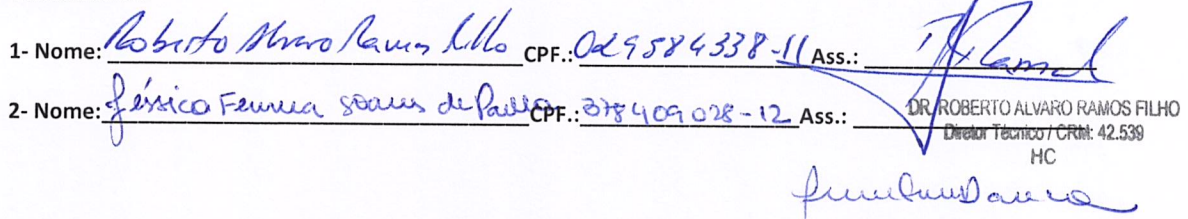 1- Nome: Roberto Alvaro Ramos Filho CPF.: 029584338-11 Ass.:
2- Nome: Jéssica Ferreira Soares de Paula CPF.: 378409028-12 Ass.:
DR. ROBERTO ALVARO RAMOS FILHO
Diretor Técnico / CRM: 42.539
HC